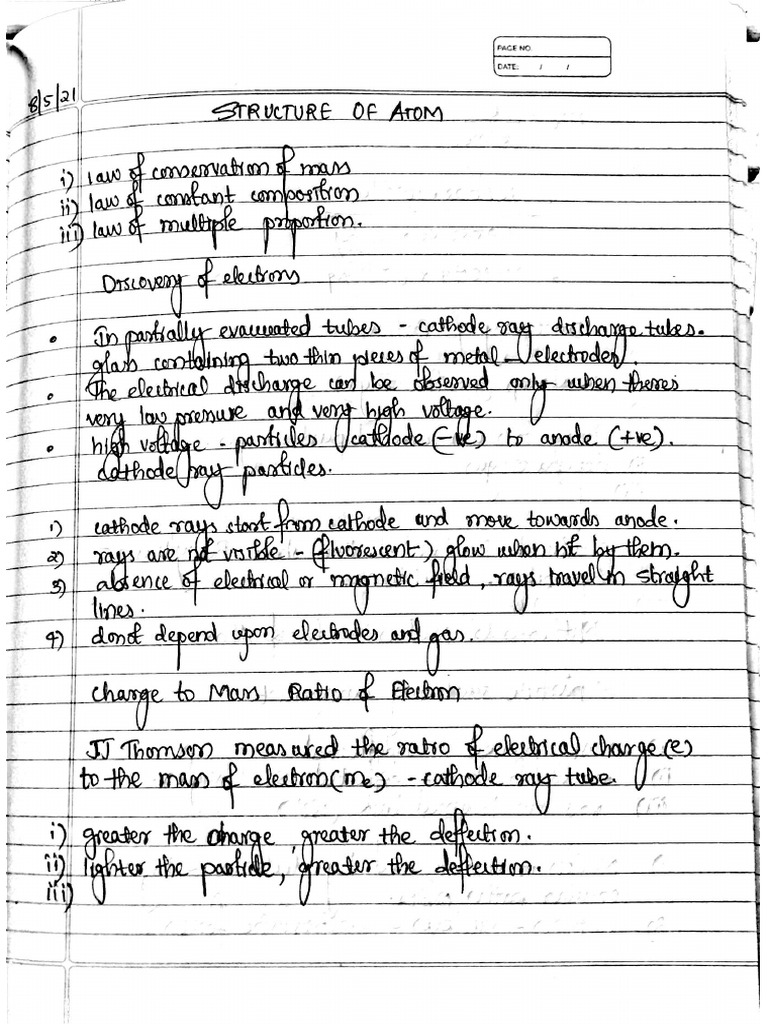 PAGE NO
DATE: / /
8/5/21
STRUCTURE OF ATOM
i) law of conservation of mass
ii) law of constant composition
iii) law of multiple proportion.
Discovery of electrons
• In partially evacuated tubes - cathode ray discharge tubes.
glass containing two thin pieces of metal - electrodes.
• The electrical discharge can be observed only when theres
very low pressure and very high voltage.
• high voltage - particles cathode (-ve) to anode (+ve).
cathode ray particles.
1) cathode rays start from cathode and move towards anode.
2) rays are not visible - (fluorescent) glow when hit by them.
3) absence of electrical or magnetic field, rays travel in straight
lines.
4) donot depend upon electrodes and gas.
Charge to Mass Ratio of Electron
JJ Thomson measured the ratio of electrical charge (e)
to the mass of electron (me) - cathode ray tube.
i) greater the charge, greater the deflection.
ii) lighter the particle, greater the deflection.
iii)